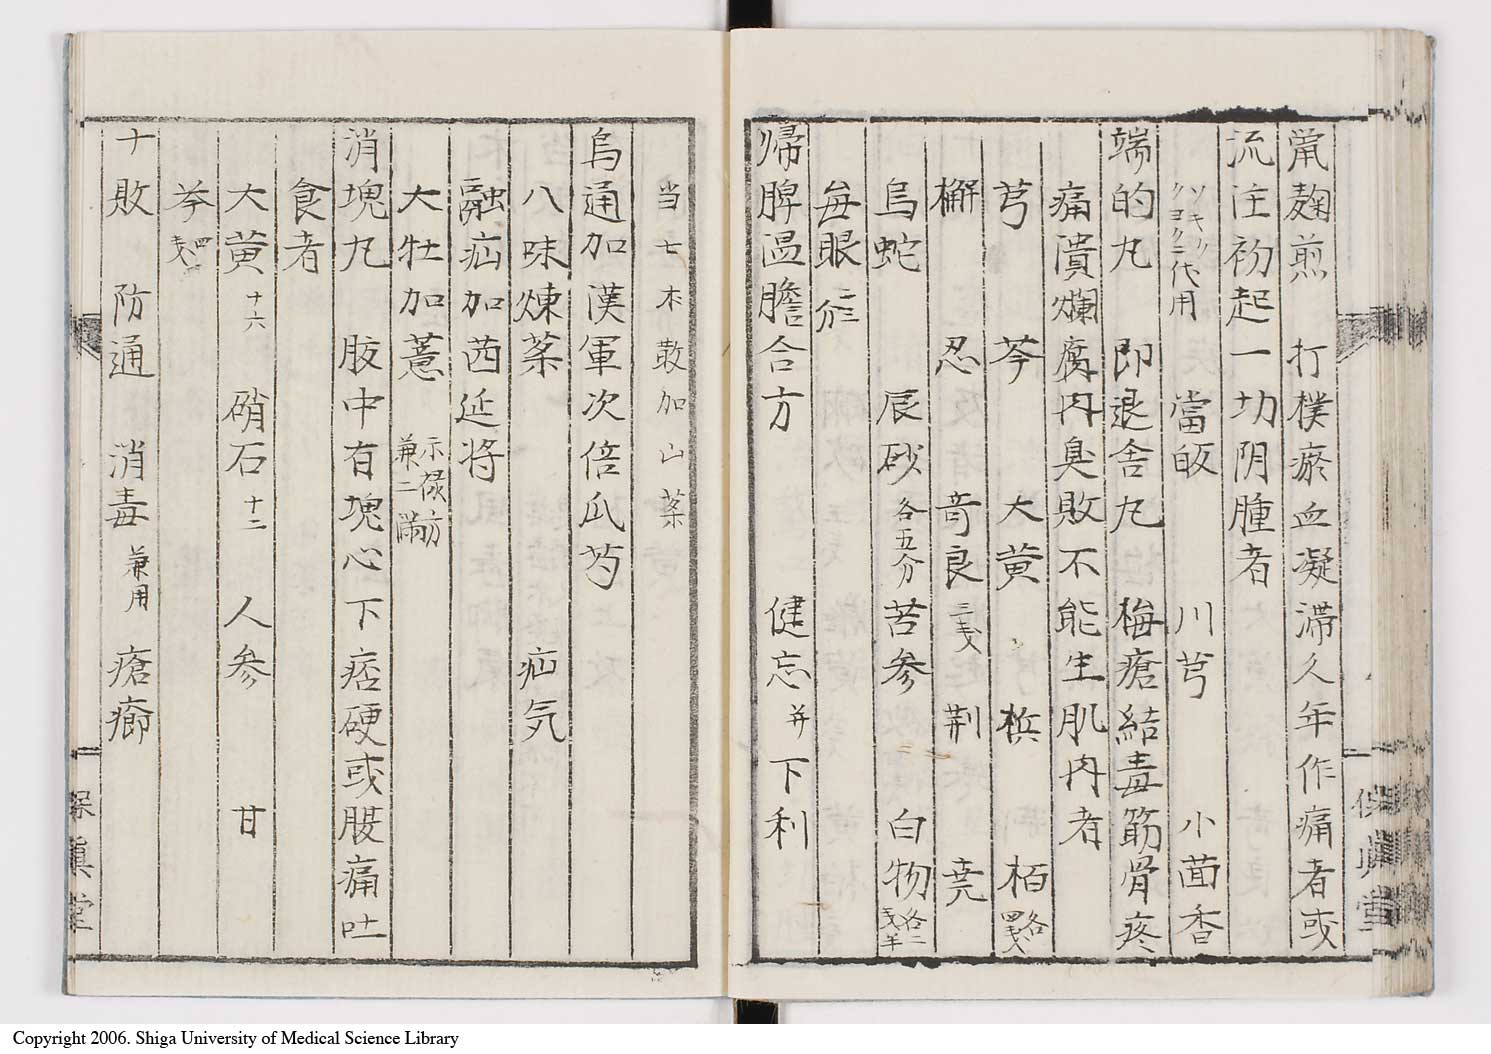 鼡麹煎 打撲瘀血凝滞久年作痛者或
流注初起一切阴腫者
ソキリクヨクニ代用 當皈 川芎 小茴香
端的丸 即退舎丸 梅瘡結毒筋骨疼
痛潰爛腐肉臭敗不能生肌肉者
芎 芩 大黄 梹 栢各四戔
檞 忍 竒良三戔 荆 蕘
烏蛇 辰砂各五分 苦参 白物各二戔半
毎眼
帰脾温膽合方 健忘并下利
当七木散加山薬
烏通加漢軍次倍瓜芍
八味煉薬 疝気
融疝加茜延将
大牡加薏 示禄方兼二満
消塊丸 胶中有塊心下痞硬或股痛吐
食者
大黄十六 硝石十二 人参 甘
芩四戔
十敗 防通 消毒兼用 瘡癤
保真堂
Copyright 2006. Shiga University of Medical Science Library